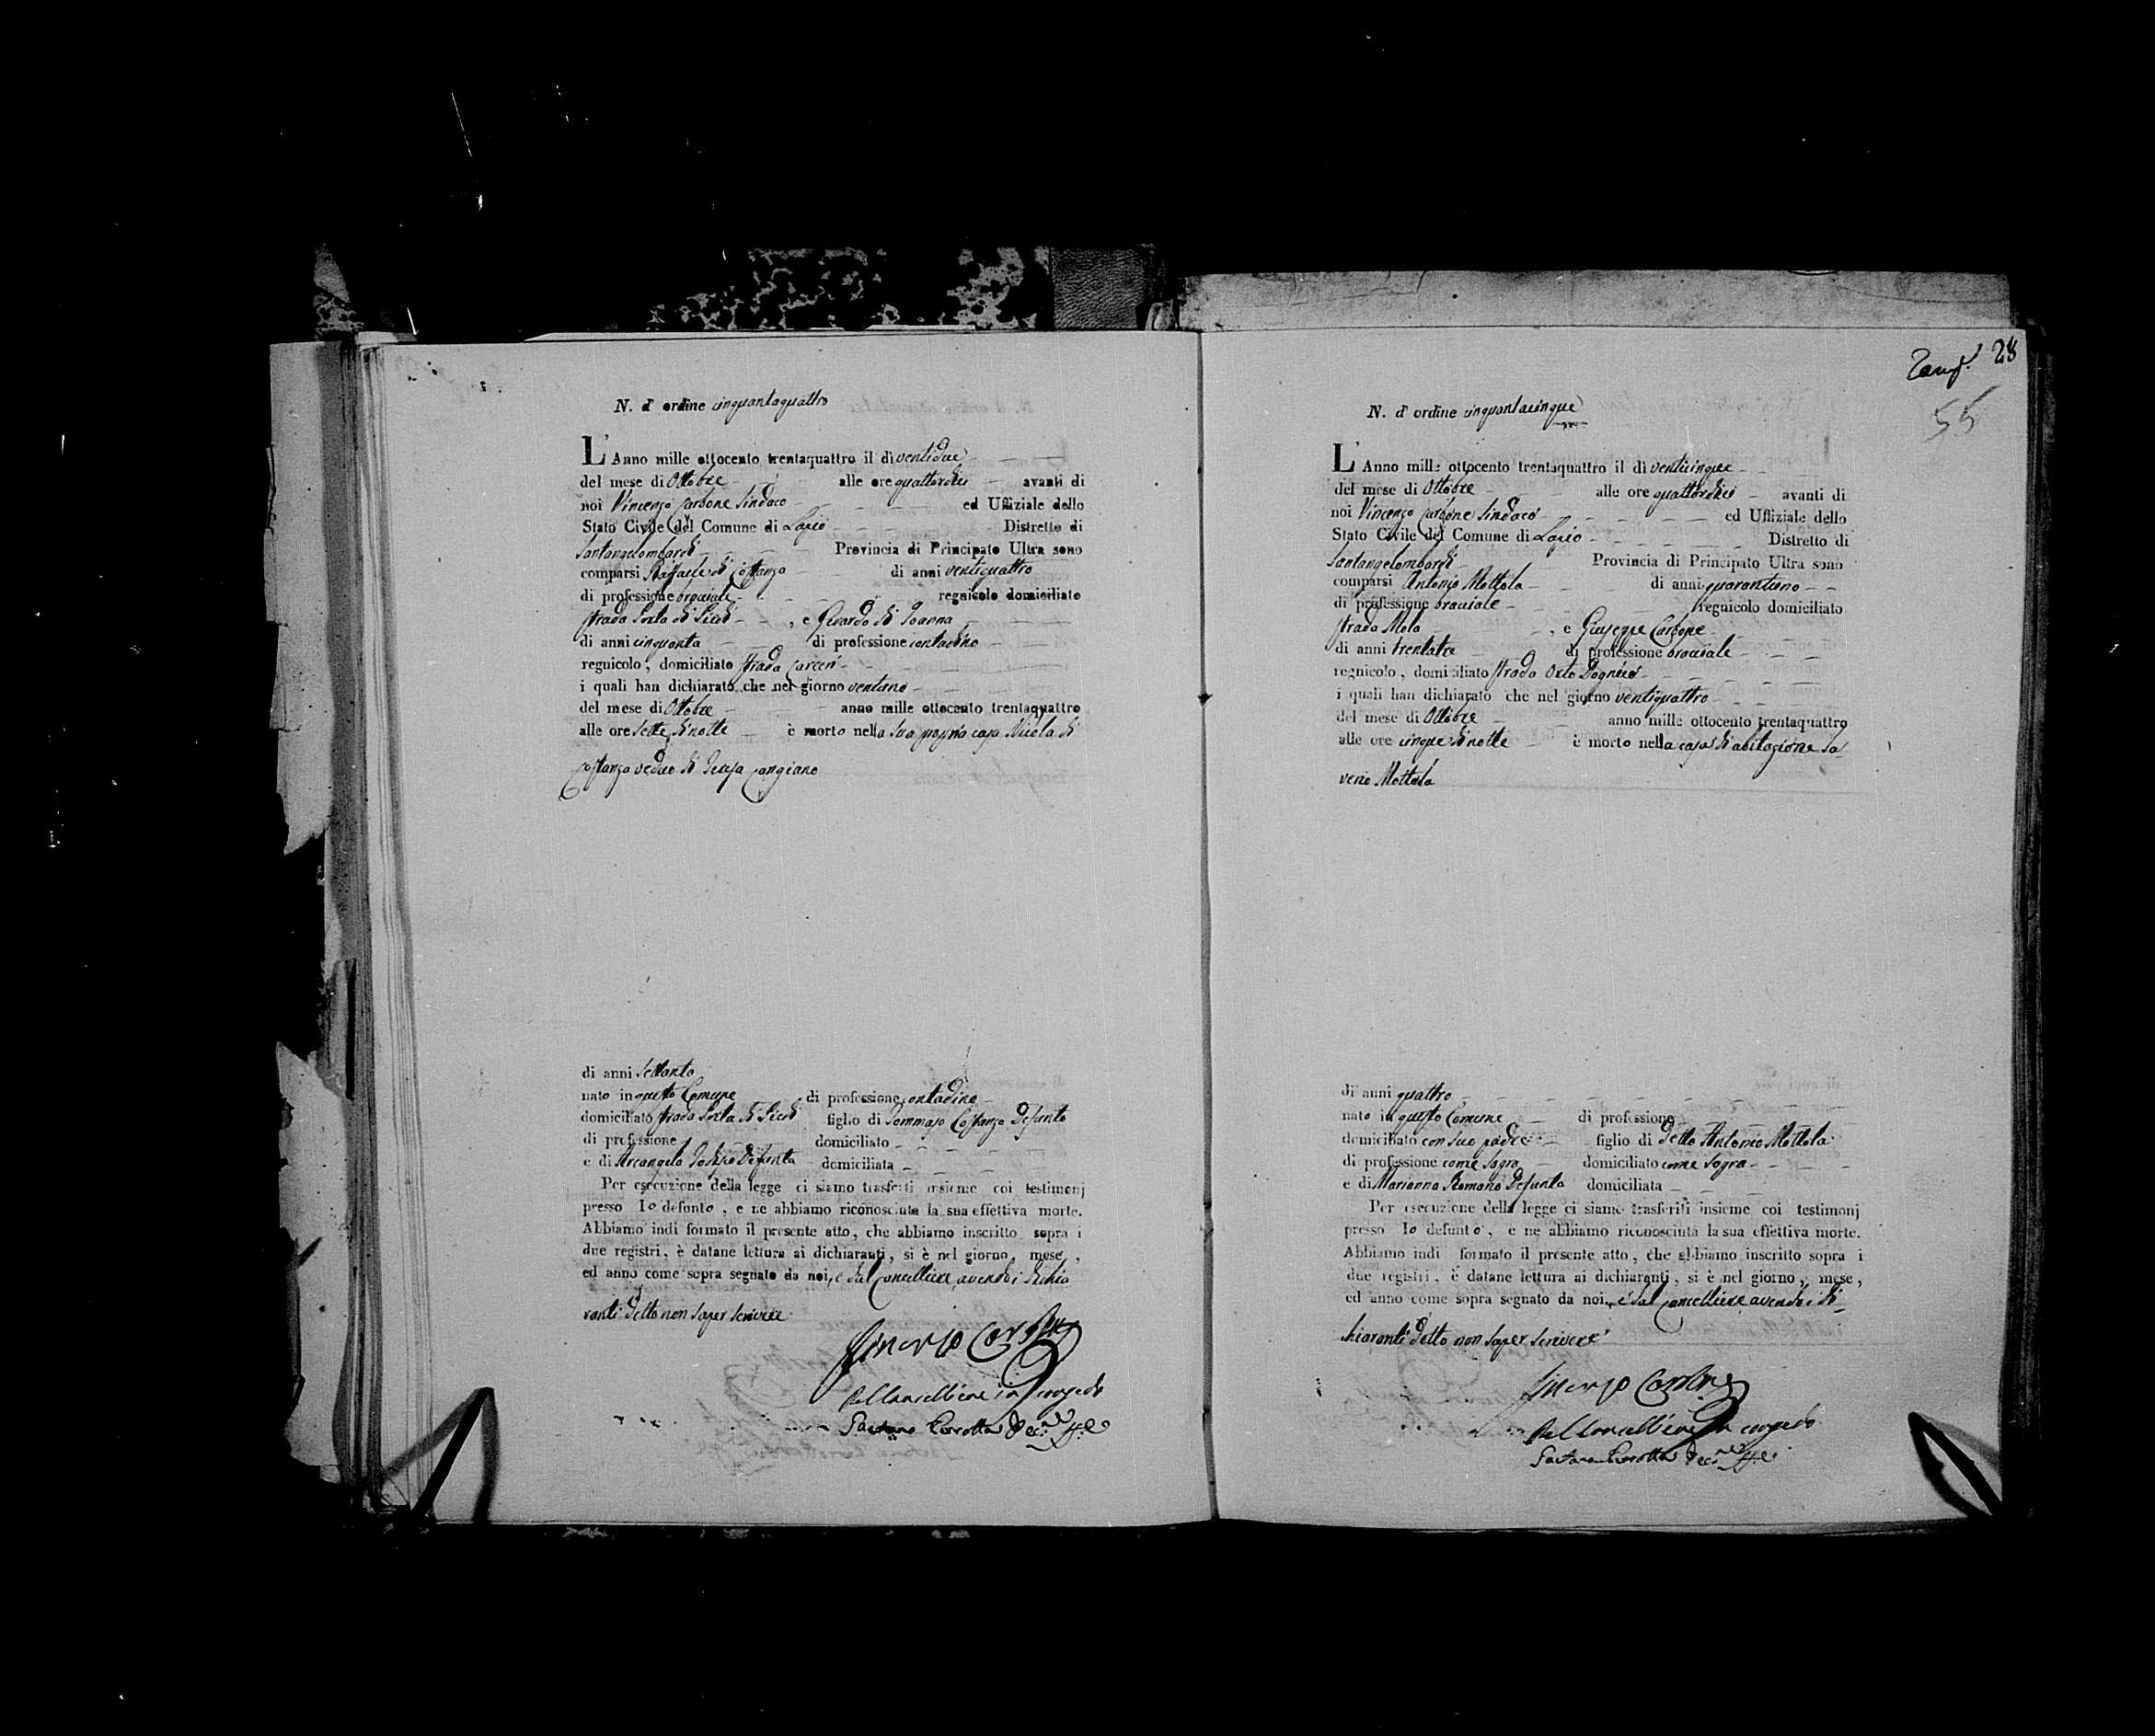 N. d'ordine cinquantaquattro
L'Anno mille ottocento trentaquattro il dì ventidue
del mese di Ottobre alle ore quattordici avanti di
noi Vincenzo Carbone Sindaco ed Uffiziale dello
Stato Civile del Comune di Lapio Distretto di
Santangelombardi Provincia di Principato Ultra sono
comparsi Raffaele di Costanzo di anni ventiquattro
di professione bracciale regnicolo domiciliato
strada Porta di , e Gerardo di Joanna
di anni cinquanta di professione contadino
regnicolo, domiciliato strada Carceri
i quali han dichiarato che nel giorno ventuno
del mese di Ottobre anno mille ottocento trentaquattro
alle ore sette di notte è morto nella sua propria casa Nicola di
Costanzo vedovo di Teresa Cangiano
di anni settanta
nato in questo Comune di professione contadino
domiciliato strada Porta di figlio di Tommaso Costanzo defunto
di professione domiciliato
e di Arcangela defunta domiciliata
Per esecuzione della legge ci siamo trasferiti insieme coi testimonj
presso lo defunto, e ne abbiamo riconosciuta la sua effettiva morte.
Abbiamo indi formato il presente atto, che abbiamo inscritto sopra i
due registri, è datane lettura ai dichiaranti, si è nel giorno, mese,
ed anno come sopra segnato da noi, e dal Cancelliere avendo i dichia
ranti detto non saper scrivere
Vincenzo Carbone
Pel Cancelliere in congedo
Gaetano
Zanf. 28
55
N. d'ordine cinquantacinque
L'Anno mille ottocento trentaquattro il dì venticinque
del mese di Ottobre alle ore quattordici avanti di
noi Vincenzo Carbone Sindaco ed Uffiziale dello
Stato Civile del Comune di Lapio Distretto di
Santangelombardi Provincia di Principato Ultra sono
comparsi Antonio Mottola di anni quarantuno
di professione bracciale regnicolo domiciliato
strada Melo , e Giuseppe Carbone
di anni trentatre di professione bracciale
regnicolo, domiciliato strada Orto
i quali han dichiarato che nel giorno ventiquattro
del mese di Ottobre anno mille ottocento trentaquattro
alle ore cinque di notte è morto nella casa di abitazione Sa
verio Mottola
di anni quattro
nato in questo Comune di professione
domiciliato con suo padre figlio di detto Antonio Mottola
di professione come sopra domiciliato come sopra
e di Marianna Romano defunta domiciliata
Per esecuzione della legge ci siamo trasferiti insieme coi testimonj
presso lo defunto, e ne abbiamo riconosciuta la sua effettiva morte.
Abbiamo indi formato il presente atto, che abbiamo inscritto sopra i
due registri, è datane lettura ai dichiaranti, si è nel giorno, mese,
ed anno come sopra segnato da noi, e dal Cancelliere avendo i di
chiaranti detto non saper scrivere
Vincenzo Carbone
Pel Cancelliere in congedo
Gaetano